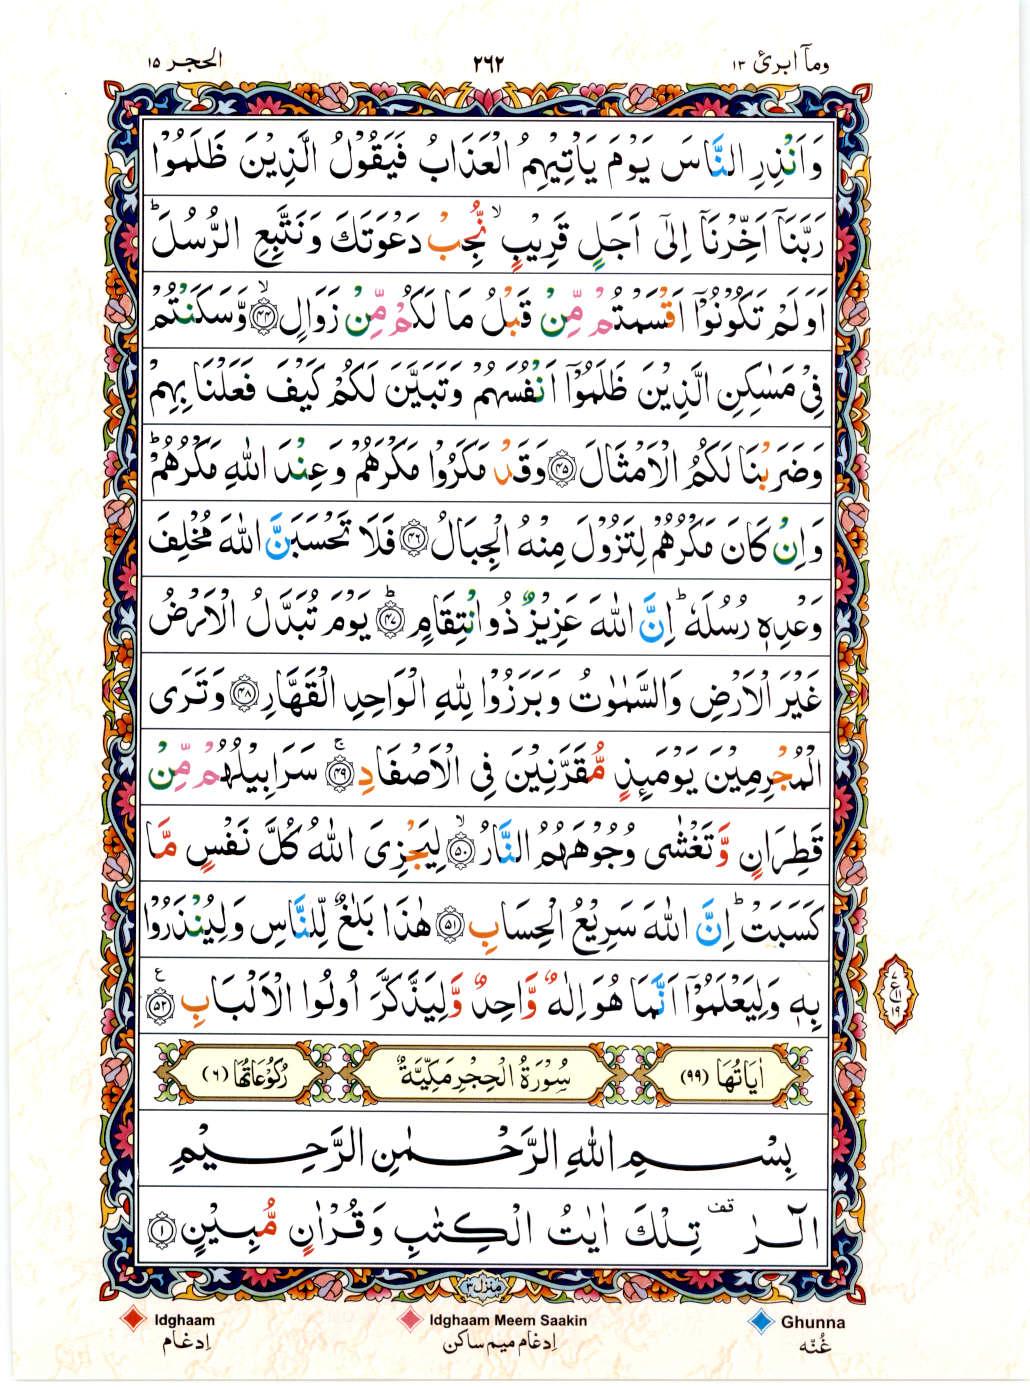 وماۤ ابرئ ۱۳
۲۶۲
الحجر ۱۵
وَاَنْذِرِ النَّاسَ يَوْمَ يَاْتِيْهِمُ الْعَذَابُ فَيَقُوْلُ الَّذِيْنَ ظَلَمُوْا
رَبَّنَاۤ اَخِّرْنَاۤ اِلٰۤى اَجَلٍ قَرِيْبٍۙ نُّجِبْ دَعْوَتَكَ وَنَتَّبِعِ الرُّسُلَؕ
اَوَلَمْ تَكُوْنُوْۤا اَقْسَمْتُمْ مِّنْ قَبْلُ مَا لَكُمْ مِّنْ زَوَالٍۙ ﴿۴۴﴾ وَّسَكَنْتُمْ
فِيْ مَسٰكِنِ الَّذِيْنَ ظَلَمُوْۤا اَنْفُسَهُمْ وَتَبَيَّنَ لَكُمْ كَيْفَ فَعَلْنَا بِهِمْ
وَضَرَبْنَا لَكُمُ الْاَمْثَالَ ﴿۴۵﴾ وَقَدْ مَكَرُوْا مَكْرَهُمْ وَعِنْدَ اللّٰهِ مَكْرُهُمْؕ
وَاِنْ كَانَ مَكْرُهُمْ لِتَزُوْلَ مِنْهُ الْجِبَالُ ﴿۴۶﴾ فَلَا تَحْسَبَنَّ اللّٰهَ مُخْلِفَ
وَعْدِهٖ رُسُلَهٗؕ اِنَّ اللّٰهَ عَزِيْزٌ ذُو انْتِقَامٍؕ ﴿۴۷﴾ يَوْمَ تُبَدَّلُ الْاَرْضُ
غَيْرَ الْاَرْضِ وَالسَّمٰوٰتُ وَبَرَزُوْا لِلّٰهِ الْوَاحِدِ الْقَهَّارِ ﴿۴۸﴾ وَتَرَى
الْمُجْرِمِيْنَ يَوْمَئِذٍ مُّقَرَّنِيْنَ فِى الْاَصْفَادِۚ ﴿۴۹﴾ سَرَابِيْلُهُمْ مِّنْ
قَطِرَانٍ وَّتَغْشٰى وُجُوْهَهُمُ النَّارُۙ ﴿۵۰﴾ لِيَجْزِىَ اللّٰهُ كُلَّ نَفْسٍ مَّا
كَسَبَتْؕ اِنَّ اللّٰهَ سَرِيْعُ الْحِسَابِ ﴿۵۱﴾ هٰذَا بَلٰغٌ لِّلنَّاسِ وَلِيُنْذَرُوْا
بِهٖ وَلِيَعْلَمُوْۤا اَنَّمَا هُوَ اِلٰهٌ وَّاحِدٌ وَّلِيَذَّكَّرَ اُولُوا الْاَلْبَابِ ﴿۵۲﴾ ع
اٰيَاتُهَا (۹۹) سُوْرَةُ الْحِجْرِ مَكِّيَّةٌ رُكُوْعَاتُهَا (۶)
بِسْمِ اللّٰهِ الرَّحْمٰنِ الرَّحِيْمِ
الٓرٰ قف تِلْكَ اٰيٰتُ الْكِتٰبِ وَقُرْاٰنٍ مُّبِيْنٍ ﴿۱﴾
منزل ۳
Ghunna
غُنّه
Idghaam Meem Saakin
اِدغام میم ساکن
Idghaam
اِدغام